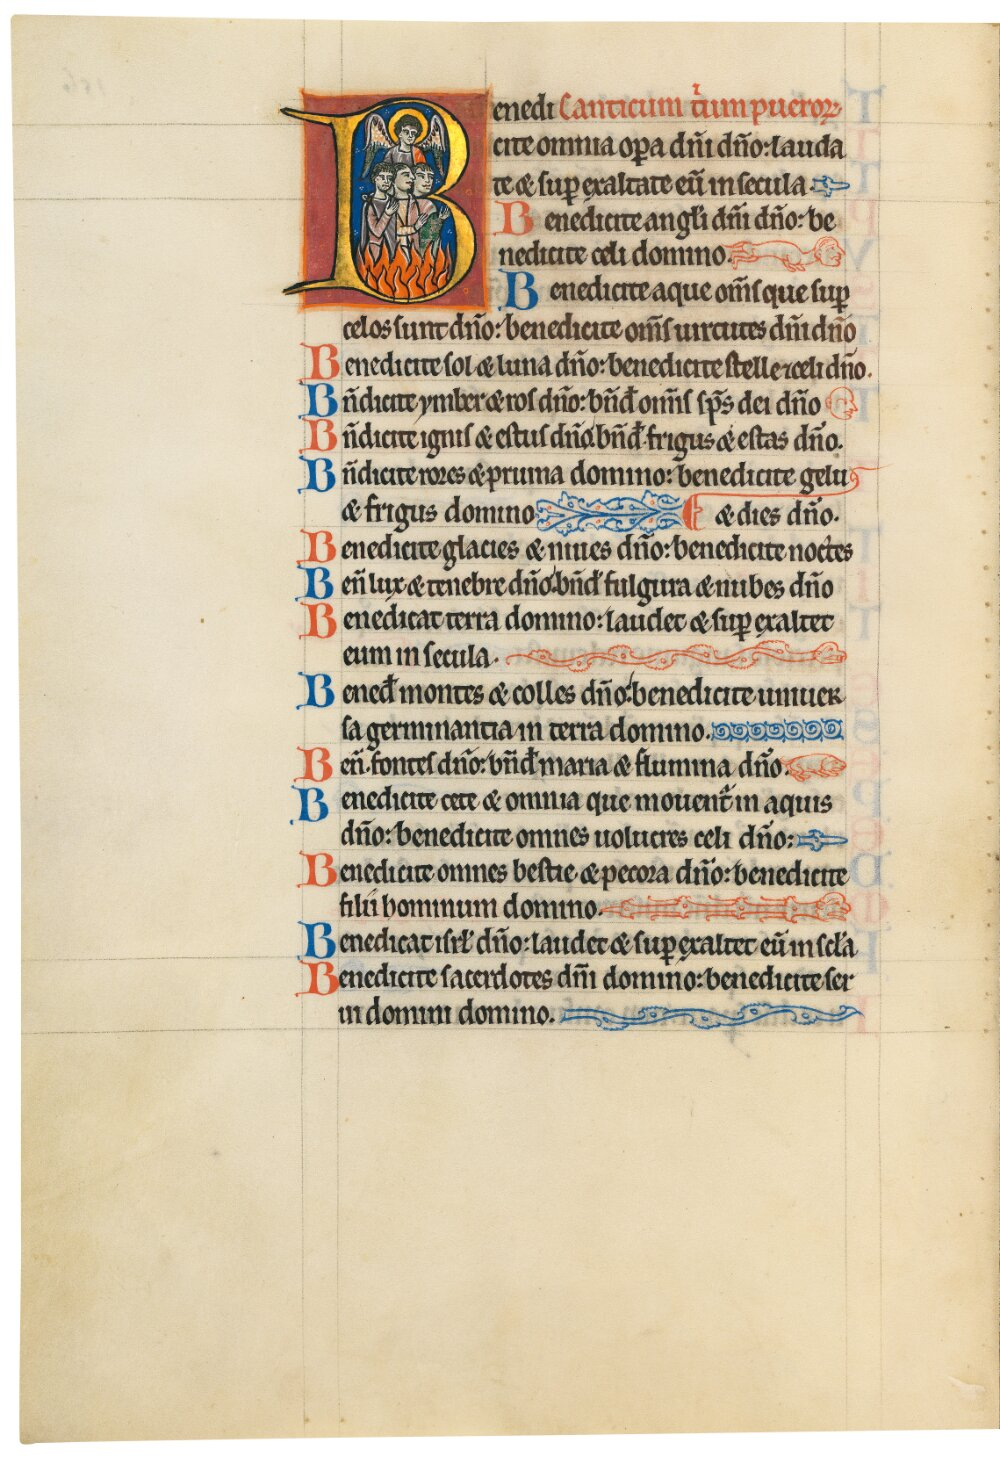 Benedi Canticum trium pueror
cite omnia opa dni dño: lauda
te & sup exaltate eū in secula
Benedicite angli dñi dño: be
nedicite celi domino.
Benedicite aque om̄s que sup
celos sunt dño: benedicite om̄s uirtutes dñi dño
Benedicite sol & luna dño: benedicite stelle celi dño.
Bn̄dicite ymber & ros dño: bn̄d om̄is sp̄s dei dño
Bn̄dicite ignis & estus dño: bn̄d frigus & estas dño.
Bn̄dicite rores & pruina domino: benedicite gelu
& frigus domino & dies dño.
Benedicite glacies & niues dño: benedicite noctes
Ben̄ lux & tenebre dño: bn̄d fulgura & nubes dño
Benedicat terra domino: laudet & sup exaltet
eum in secula.
Bened montes & colles dño: benedicite uniuer
sa germinantia in terra domino.
Ben̄. fontes dño: bn̄d maria & flumina dño.
Benedicite cete & omnia que mouent̄ in aquis
dño: benedicite omnes uolucres celi dño:
Benedicite omnes bestie & pecora dño: benedicite
filii hominum domino.
Benedicat isrl dño: laudet & sup exaltet eū in scla
Benedicite sacerdotes dñi domino: benedicite ser
ui domini domino.